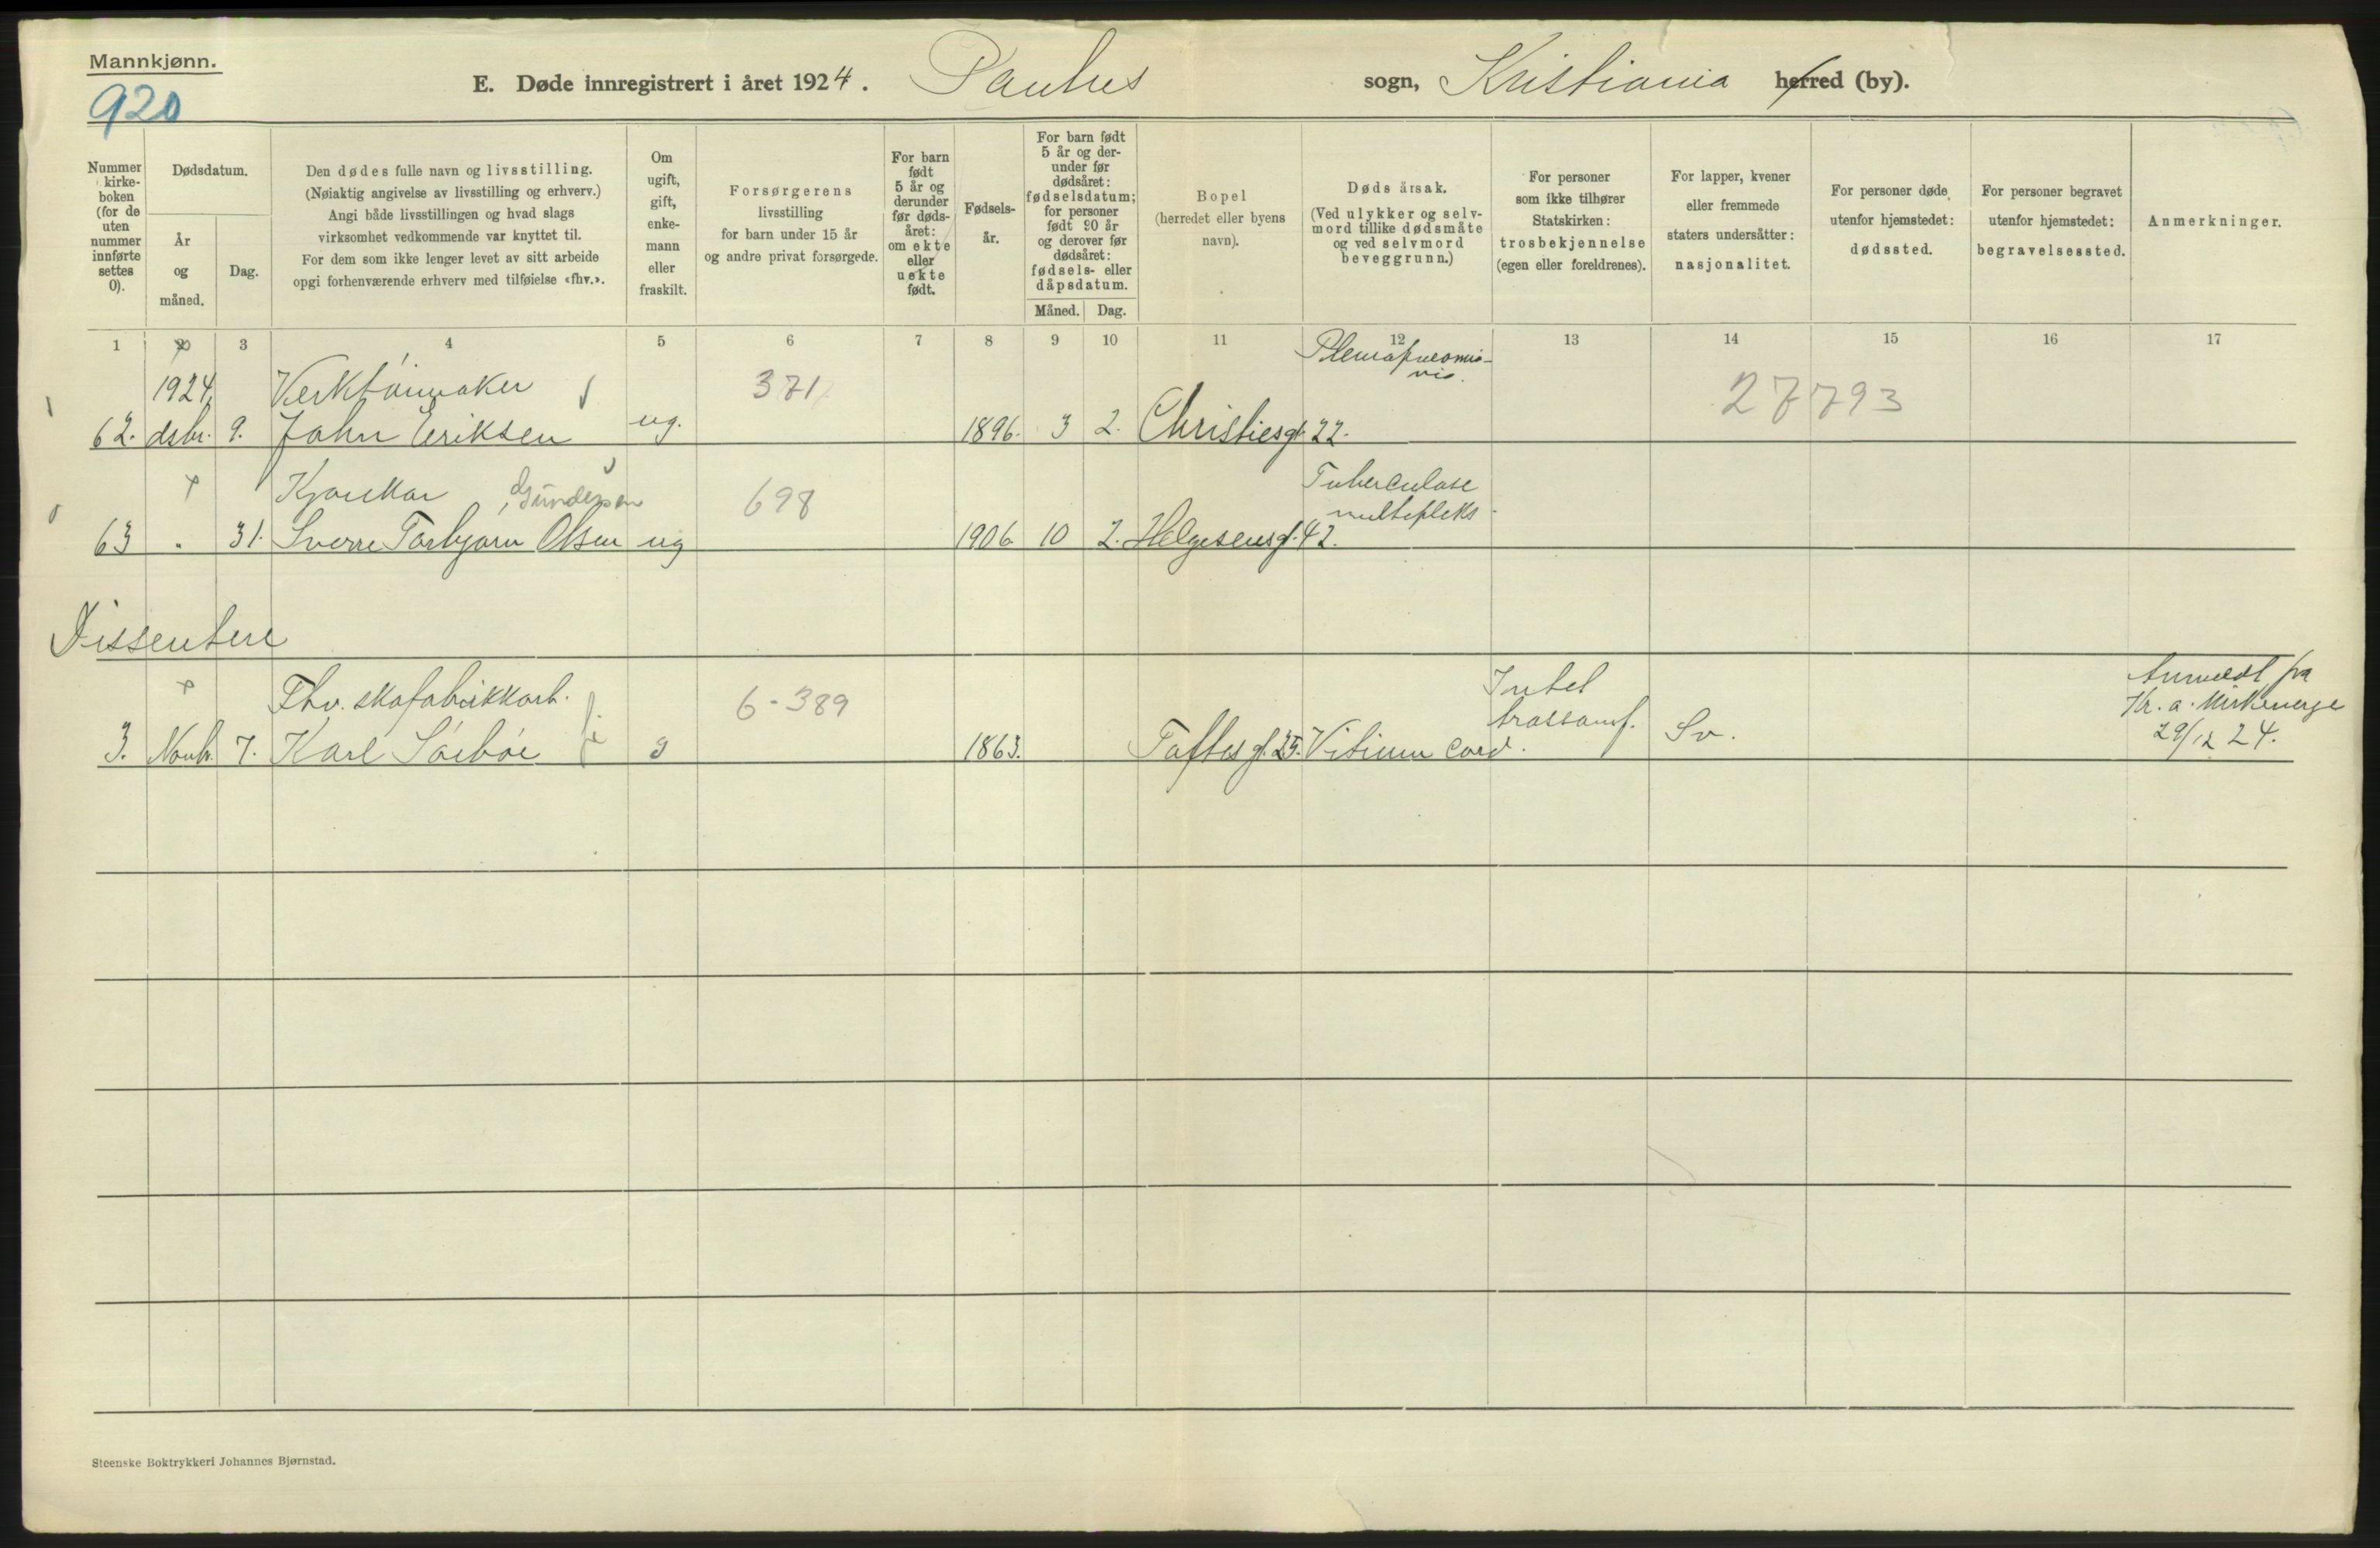 Mannkjønn.
920
E. Døde innregistrert i året 1924. Paulus sogn, Kristiania herred (by).
Nummer i kirke-boken (for de uten nummer innførte settes 0).
Dødsdatum.
År og måned.
Dag.
Den dødes fulle navn og livsstilling.
(Nøiaktig angivelse av livsstilling og erhverv.)
Angi både livsstillingen og hvad slags
virksomhet vedkommende var knyttet til.
For dem som ikke lenger levet av sitt arbeide
opgi forhenværende erhverv med tilføielse «fhv.».
Om ugift, gift, enke-mann eller fraskilt.
Forsørgerens
livsstilling
for barn under 15 år
og andre privat forsørgede.
For barn født 5 år og derunder før døds-året: om ekte eller uekte født.
Fødsels-år.
For barn født 5 år og der-under før dødsåret: fødselsdatum; for personer født 90 år og derover før dødsåret: fødsels- eller dåpsdatum.
Måned. Dag.
Bopel
(herredet eller byens
navn).
Døds årsak.
(Ved ulykker og selv-
mord tillike dødsmåte
og ved selvmord
beveggrunn.)
For personer
som ikke tilhører
Statskirken:
trosbekjennelse
(egen eller foreldrenes).
For lapper, kvener
eller fremmede
staters undersåtter:
nasjonalitet.
For personer døde
utenfor hjemstedet:
dødssted.
For personer begravet
utenfor hjemstedet:
begravelsessted.
Anmerkninger.
1 2 3 4 5 6 7 8 9 10 11 12 13 14 15 16 17
1924 Verktøimaker 371 Pleuropneomo-
nie. 27793
62. dsbr. 9. John Eriksen ug. 1896. 3 2. Christiesgt. 22.
Kjørekar Gundersen 698 Tuberculose
multipleks
63 " 31. Sverre Torbjørn Olsen ug 1906 10 2. Helgesensgt. 42.
Dissentere
Fhv. skofabrikkarb. 6-389 Intet
trossamf. Anmeldt fra
Kr.a.
3. Novbr. 7. Karl Sørbøe g 1863. Toftesgt. 25. Vitium cord. Sv. 29/12 24.
Steenske Boktrykkeri Johannes Bjørnstad.